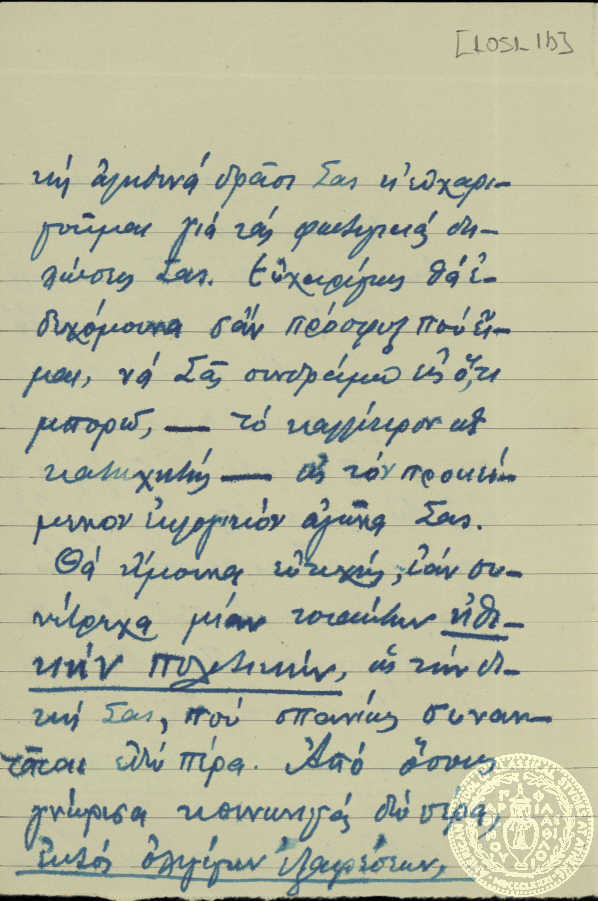 [105L 1b]
κή ἀληθινά δρᾶσι Σας κ' εὐχαρι-
στοῦμαι γιά τάς φωτεινάς δη-
λώσεις Σας. Εὐχαρίστως θά ἐ-
δεχόμουνα σάν πρόσφυξ πού εἶ-
μαι, νά Σᾶς συνδράμω εἰς ὅ,τι
μπορῶ, — τό καλλίτερον
κατηχητής — εἰς τόν προκεί-
μενον ἐκλογικόν ἀγῶνα Σας.
Θά ἤμουνα εὐτυχής, ἐάν συ-
νέτρεχα μίαν τοιαύτην ἠθι-
κήν πολιτικήν, ὡς τήν δι-
κή Σας, πού σπανίως συναν-
τᾶται ἐδῶ πέρα. Ἀπό ὅσους
γνώρισα κοινωνικάς
ἐκτός ὀλιγίστων ἐξαιρέσεων,